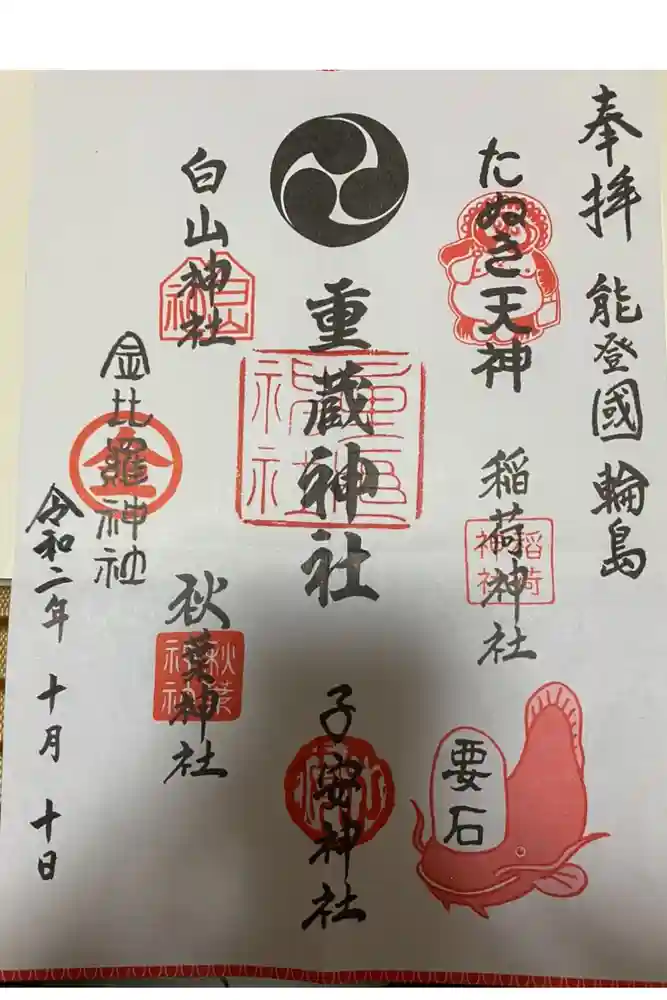 奉拝 能登國 輪島
たぬき天神
稲荷神社
稲荷神社
要石
重蔵神社
子安神社
白山神社
秋葉神社
秋葉神社
金比羅神社
金
令和二年 十月 十日